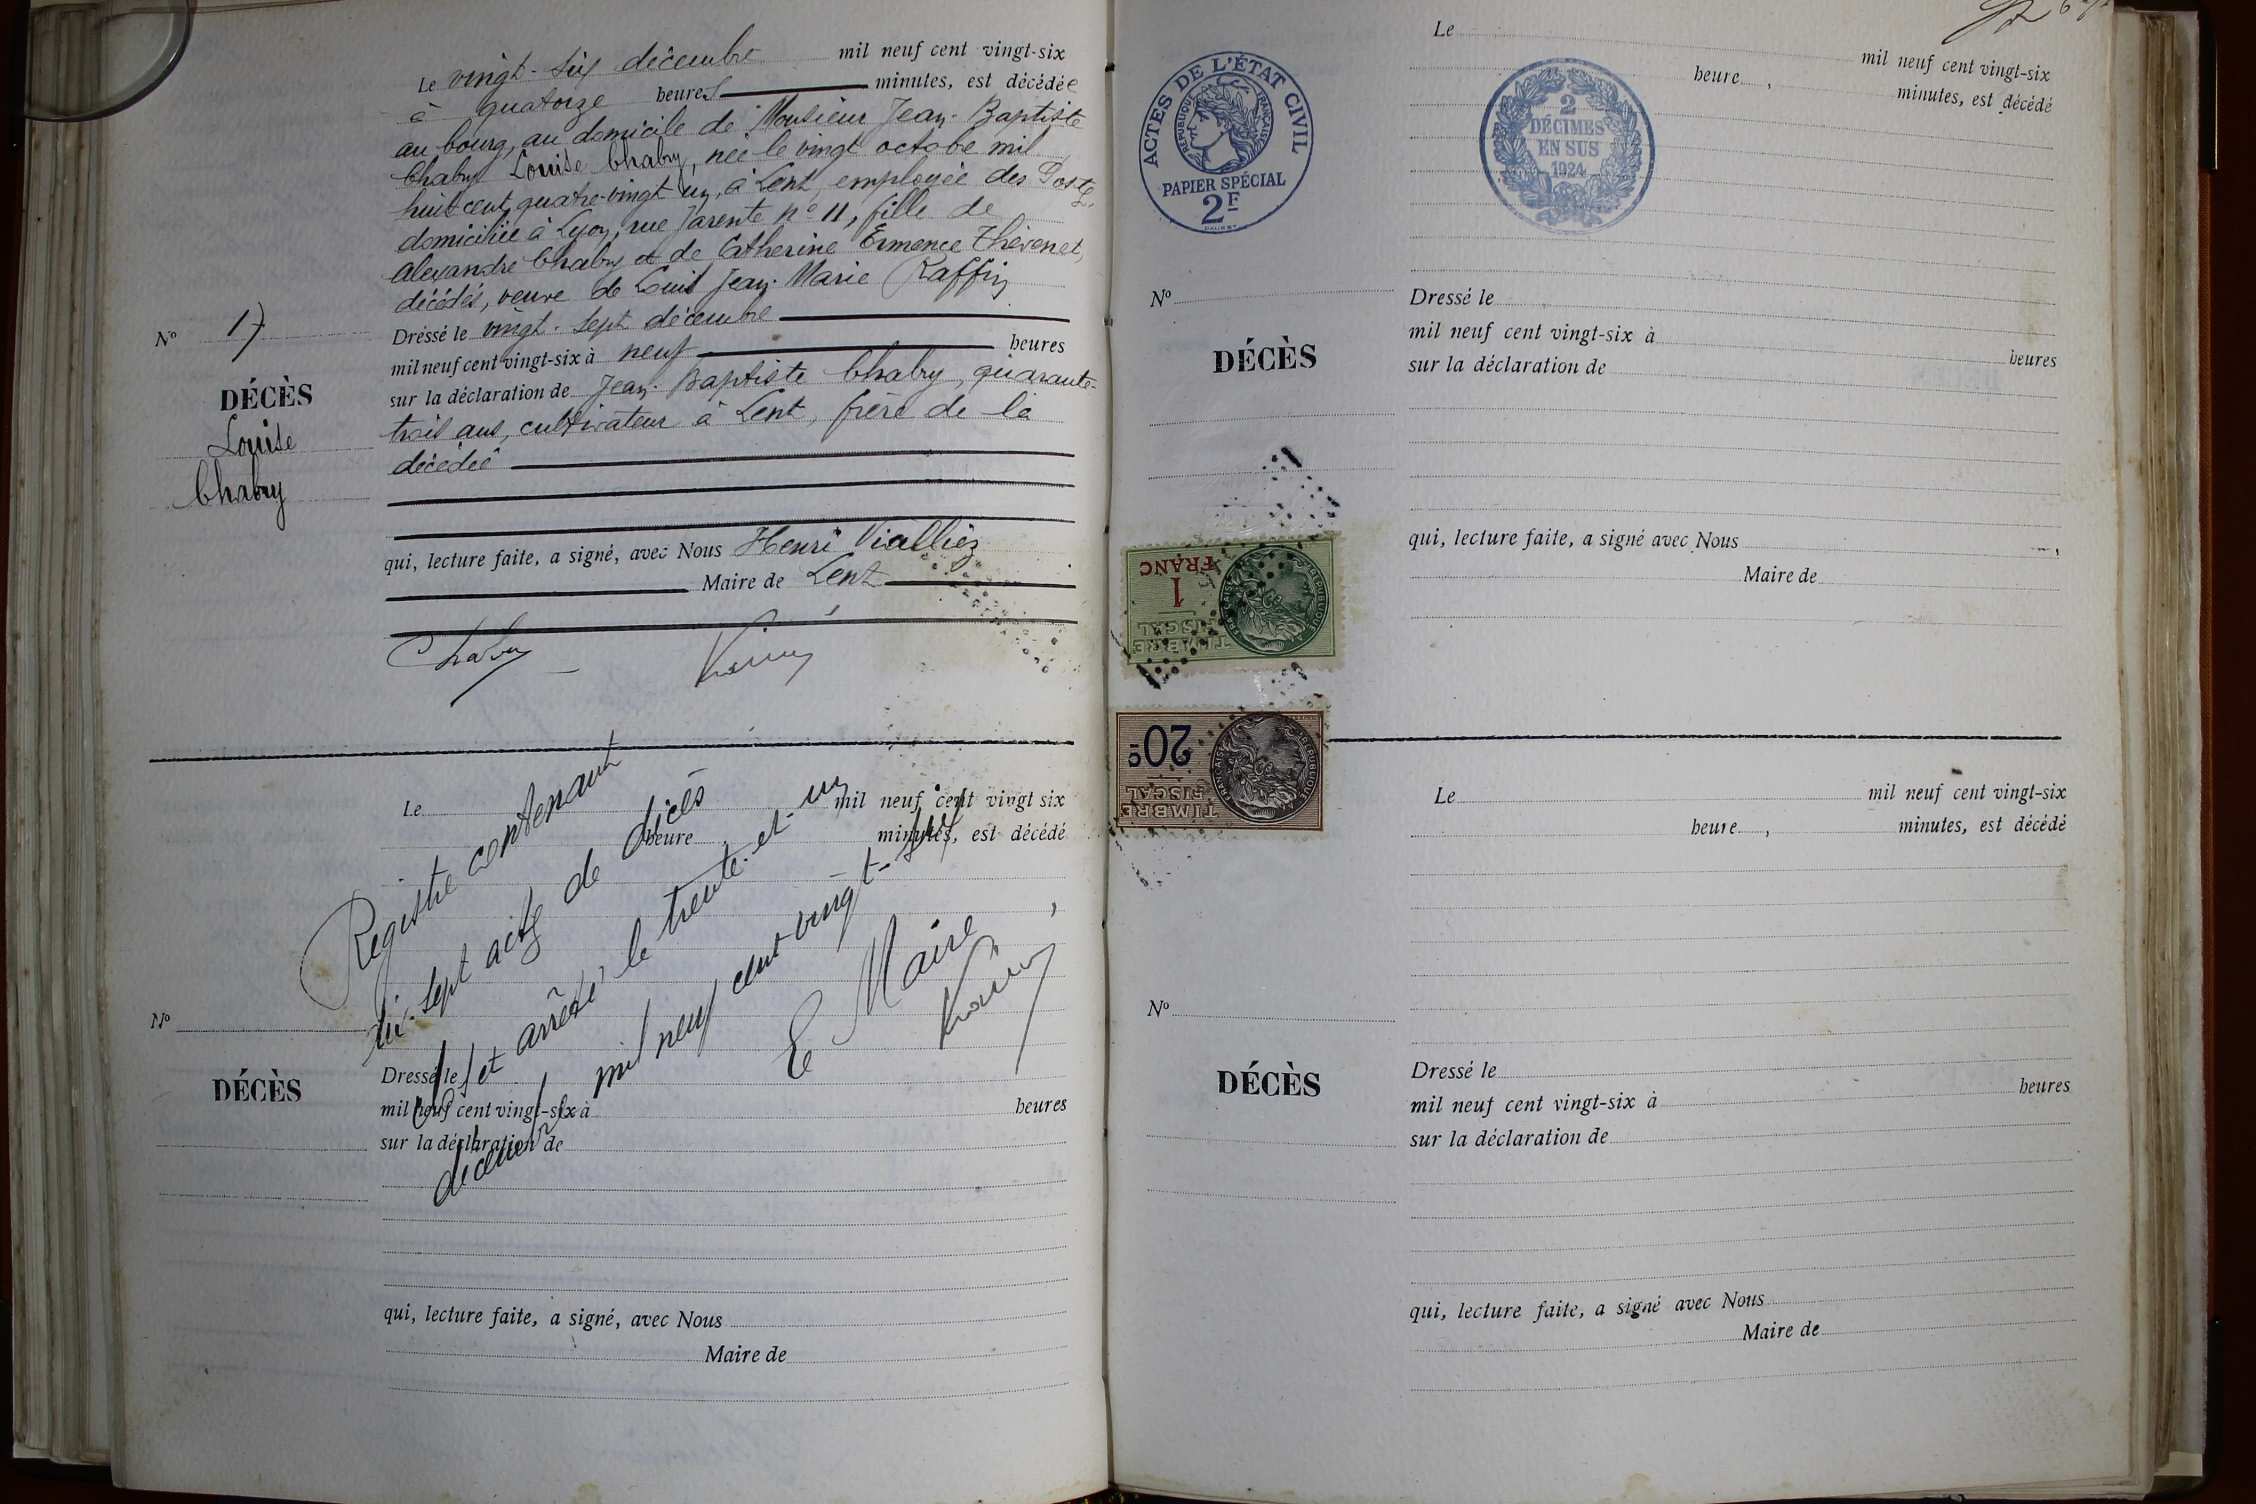 Le vingt-six décembre mil neuf cent vingt-six
à quatorze heures minutes, est décédée
au bourg, au domicile de Monsieur Jean-Baptiste
Chabry Louise Chabry, née le vingt octobre mil
huit cent quatre-vingt un, à Lent, employée des Postes
domiciliée à Lyon, rue Jarente nº 11, fille de
Alexandre Chabry et de Catherine Ermence Thévenet,
décédés, veuve de Louis Jean-Marie Raffin
Nº 17
DÉCÈS
Louise
Chabry
Dressé le vingt-sept décembre
mil neuf cent vingt-six à neuf heures
sur la déclaration de Jean-Baptiste Chabry, quarante-
trois ans, cultivateur à Lent, frère de la
décédée
qui, lecture faite, a signé, avec Nous Henri
Maire de Lent
Chabry
Le mil neuf cent vingt six
heure minutes, est décédé
Nº
DÉCÈS
Dressé le
mil neuf cent vingt-six à heures
sur la déclaration de
qui, lecture faite, a signé, avec Nous
Maire de
Registre contenant
dix-sept actes de décès
clos et arrêté le trente-et-un
décembre mil neuf cent vingt-six
Le Maire
Le mil neuf cent vingt-six
heure , minutes, est décédé
ACTES DE L'ÉTAT CIVIL
RÉPUBLIQUE FRANÇAISE
PAPIER SPÉCIAL
2F
2
DÉCIMES
EN SUS
1924
Nº
DÉCÈS
Dressé le
mil neuf cent vingt-six à heures
sur la déclaration de
qui, lecture faite, a signé avec Nous ,
Maire de
1
FRANC
TIMBRE
FISCAL
RÉPUBLIQUE FRANÇAISE
20c
TIMBRE
FISCAL
RÉPUBLIQUE FRANÇAISE
Le mil neuf cent vingt-six
heure , minutes, est décédé
Nº
DÉCÈS
Dressé le
mil neuf cent vingt-six à heures
sur la déclaration de
qui, lecture faite, a signé avec Nous
Maire de